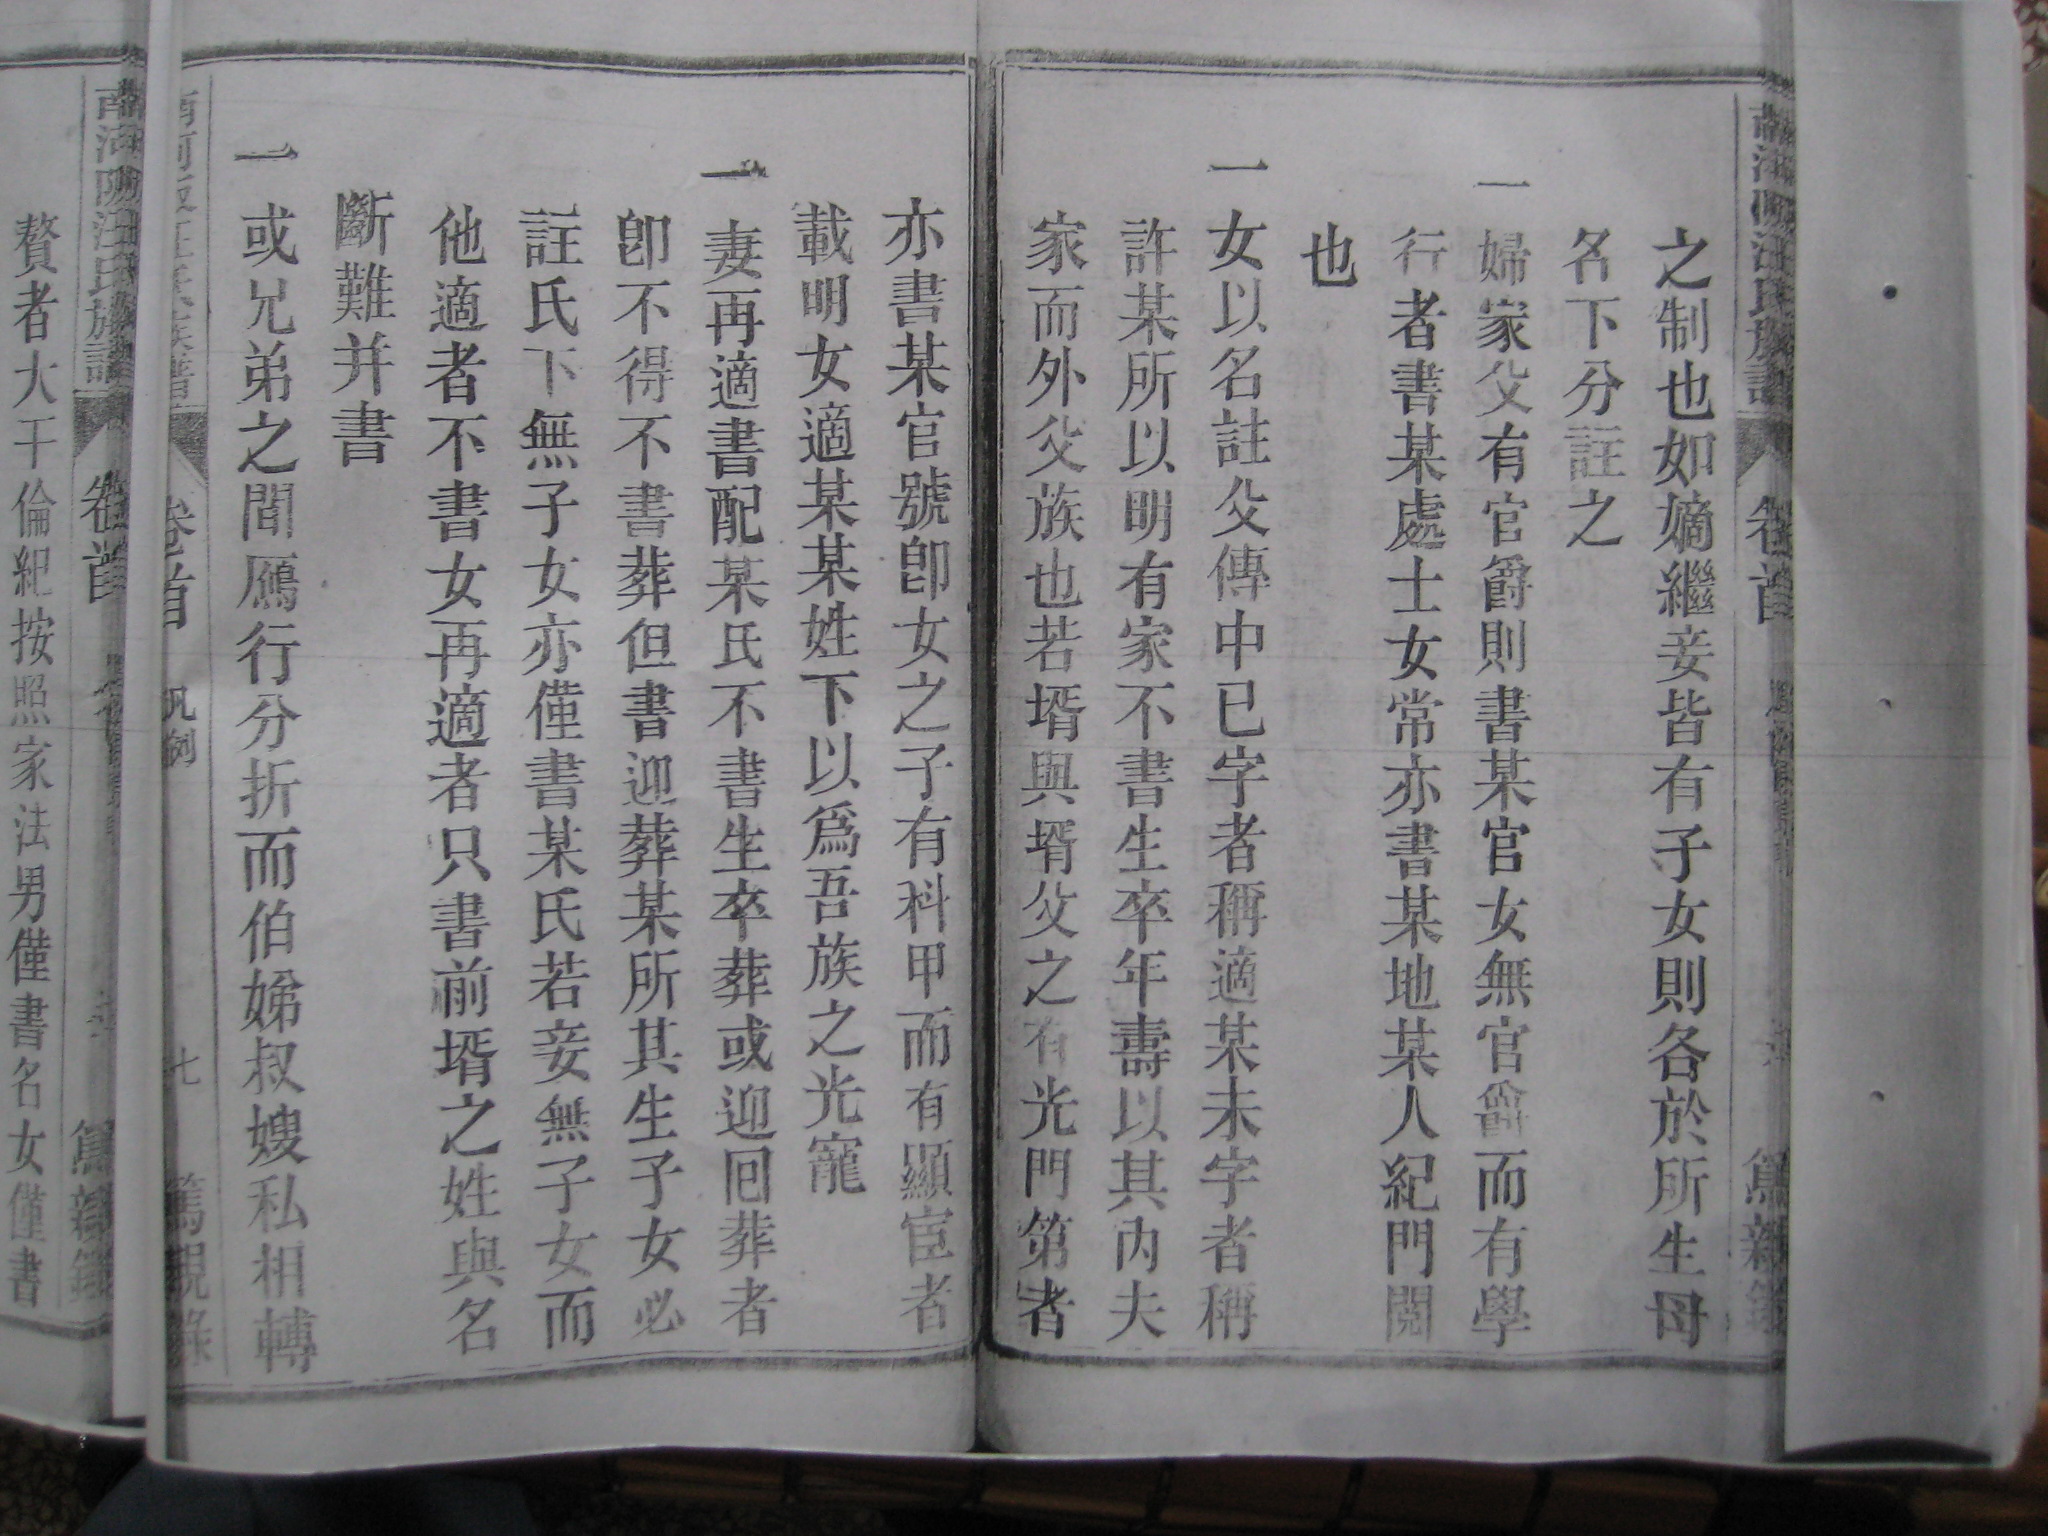 之制也如嫡繼妾皆有子女則各於所生母
名下分註之
一婦家父有官爵則書某官女無官爵而有學
行者書某處士女常亦書某地某人紀門閥
也
一女以名註父傳中已字者稱適某未字者稱
許某所以明有家不書生卒年壽以其內夫
家而外父族也若壻與壻父之有光門第者
亦書某官號卽女之子有科甲而有顯宦者
載明女適某某姓下以爲吾族之光寵
一妻再適書配某氏不書生卒葬或迎回葬者
卽不得不書葬但書迎葬某所其生子女必
註氏下無子女亦僅書某氏若妾無子女而
他適者不書女再適者只書前壻之姓與名
斷難并書
一或兄弟之間鴈行分折而伯娣叔嫂私相轉
卷首 凡例 七 篤親錄
卷首
贅者大干倫紀按照家法男僅書名女僅書